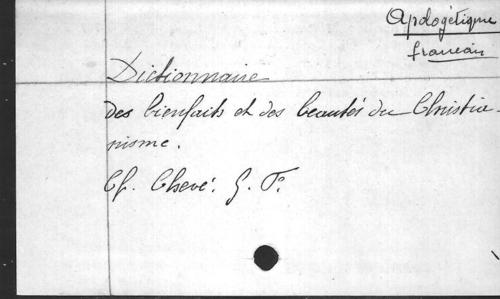 Apologétique
francais
Dictionnaire
des bienfaits et des beautés du Christia-
nisme.
Cf. Chevé. G. F.